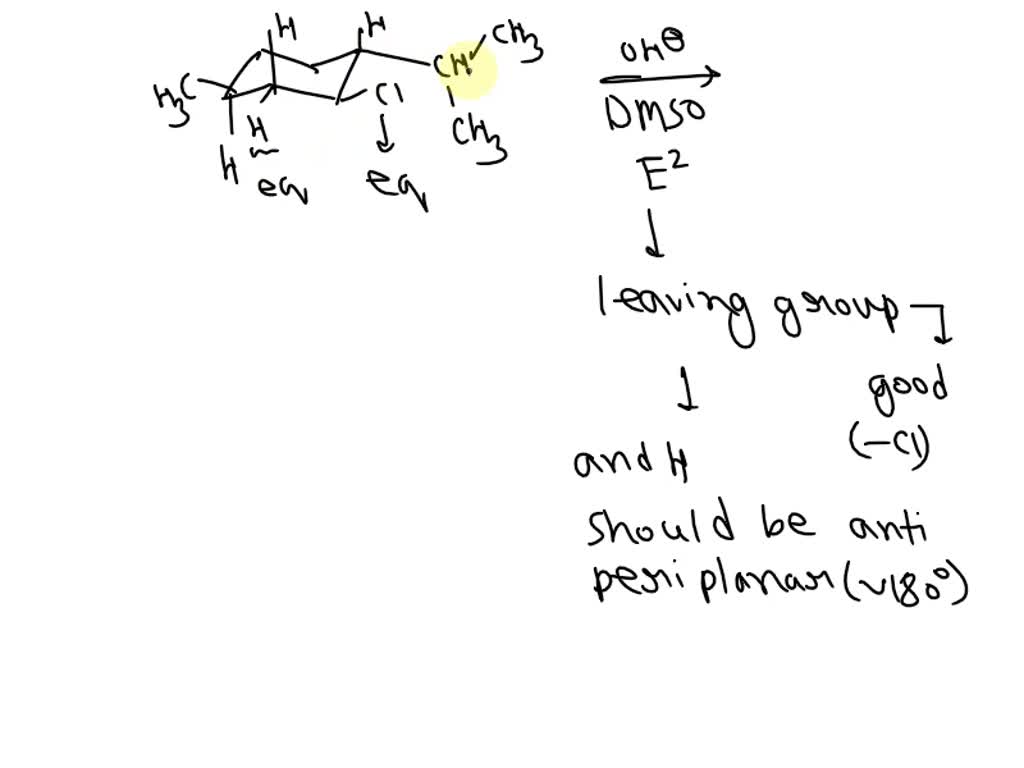 H H CH3
H3C CH Cl
CH3
H
H
eq eq
OH⊖
DMSO
E²
leaving group
good
(-Cl)
and H
should be anti
peri planar (~180°)